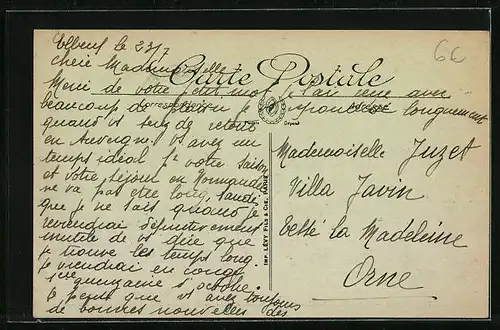 Elbeuf le 23/7
Chère Mademoiselle
Carte Postale
Merci de votre petit mot, j'ai reçu avec
Correspondance
Adresse
beaucoup de plaisir je répondrai longuement
quand vs serez de retour
en Auvergne. Vs avez un
temps idéal pr votre saison
et votre séjour en Normandie
ne va pas être long, tandis
que je ne sais quand je
reviendrai définitivement
inutile de vs dire que
je trouve les temps long
je viendrai en congé
1ère quinzaine d'octobre.
Je pense que vs avez toujours
de bonnes nouvelles des
Mademoiselle Juzet
Villa Javin
Tessé la Madeleine
Orne
IMP. LÉVY FILS & CIE, PARIS
66